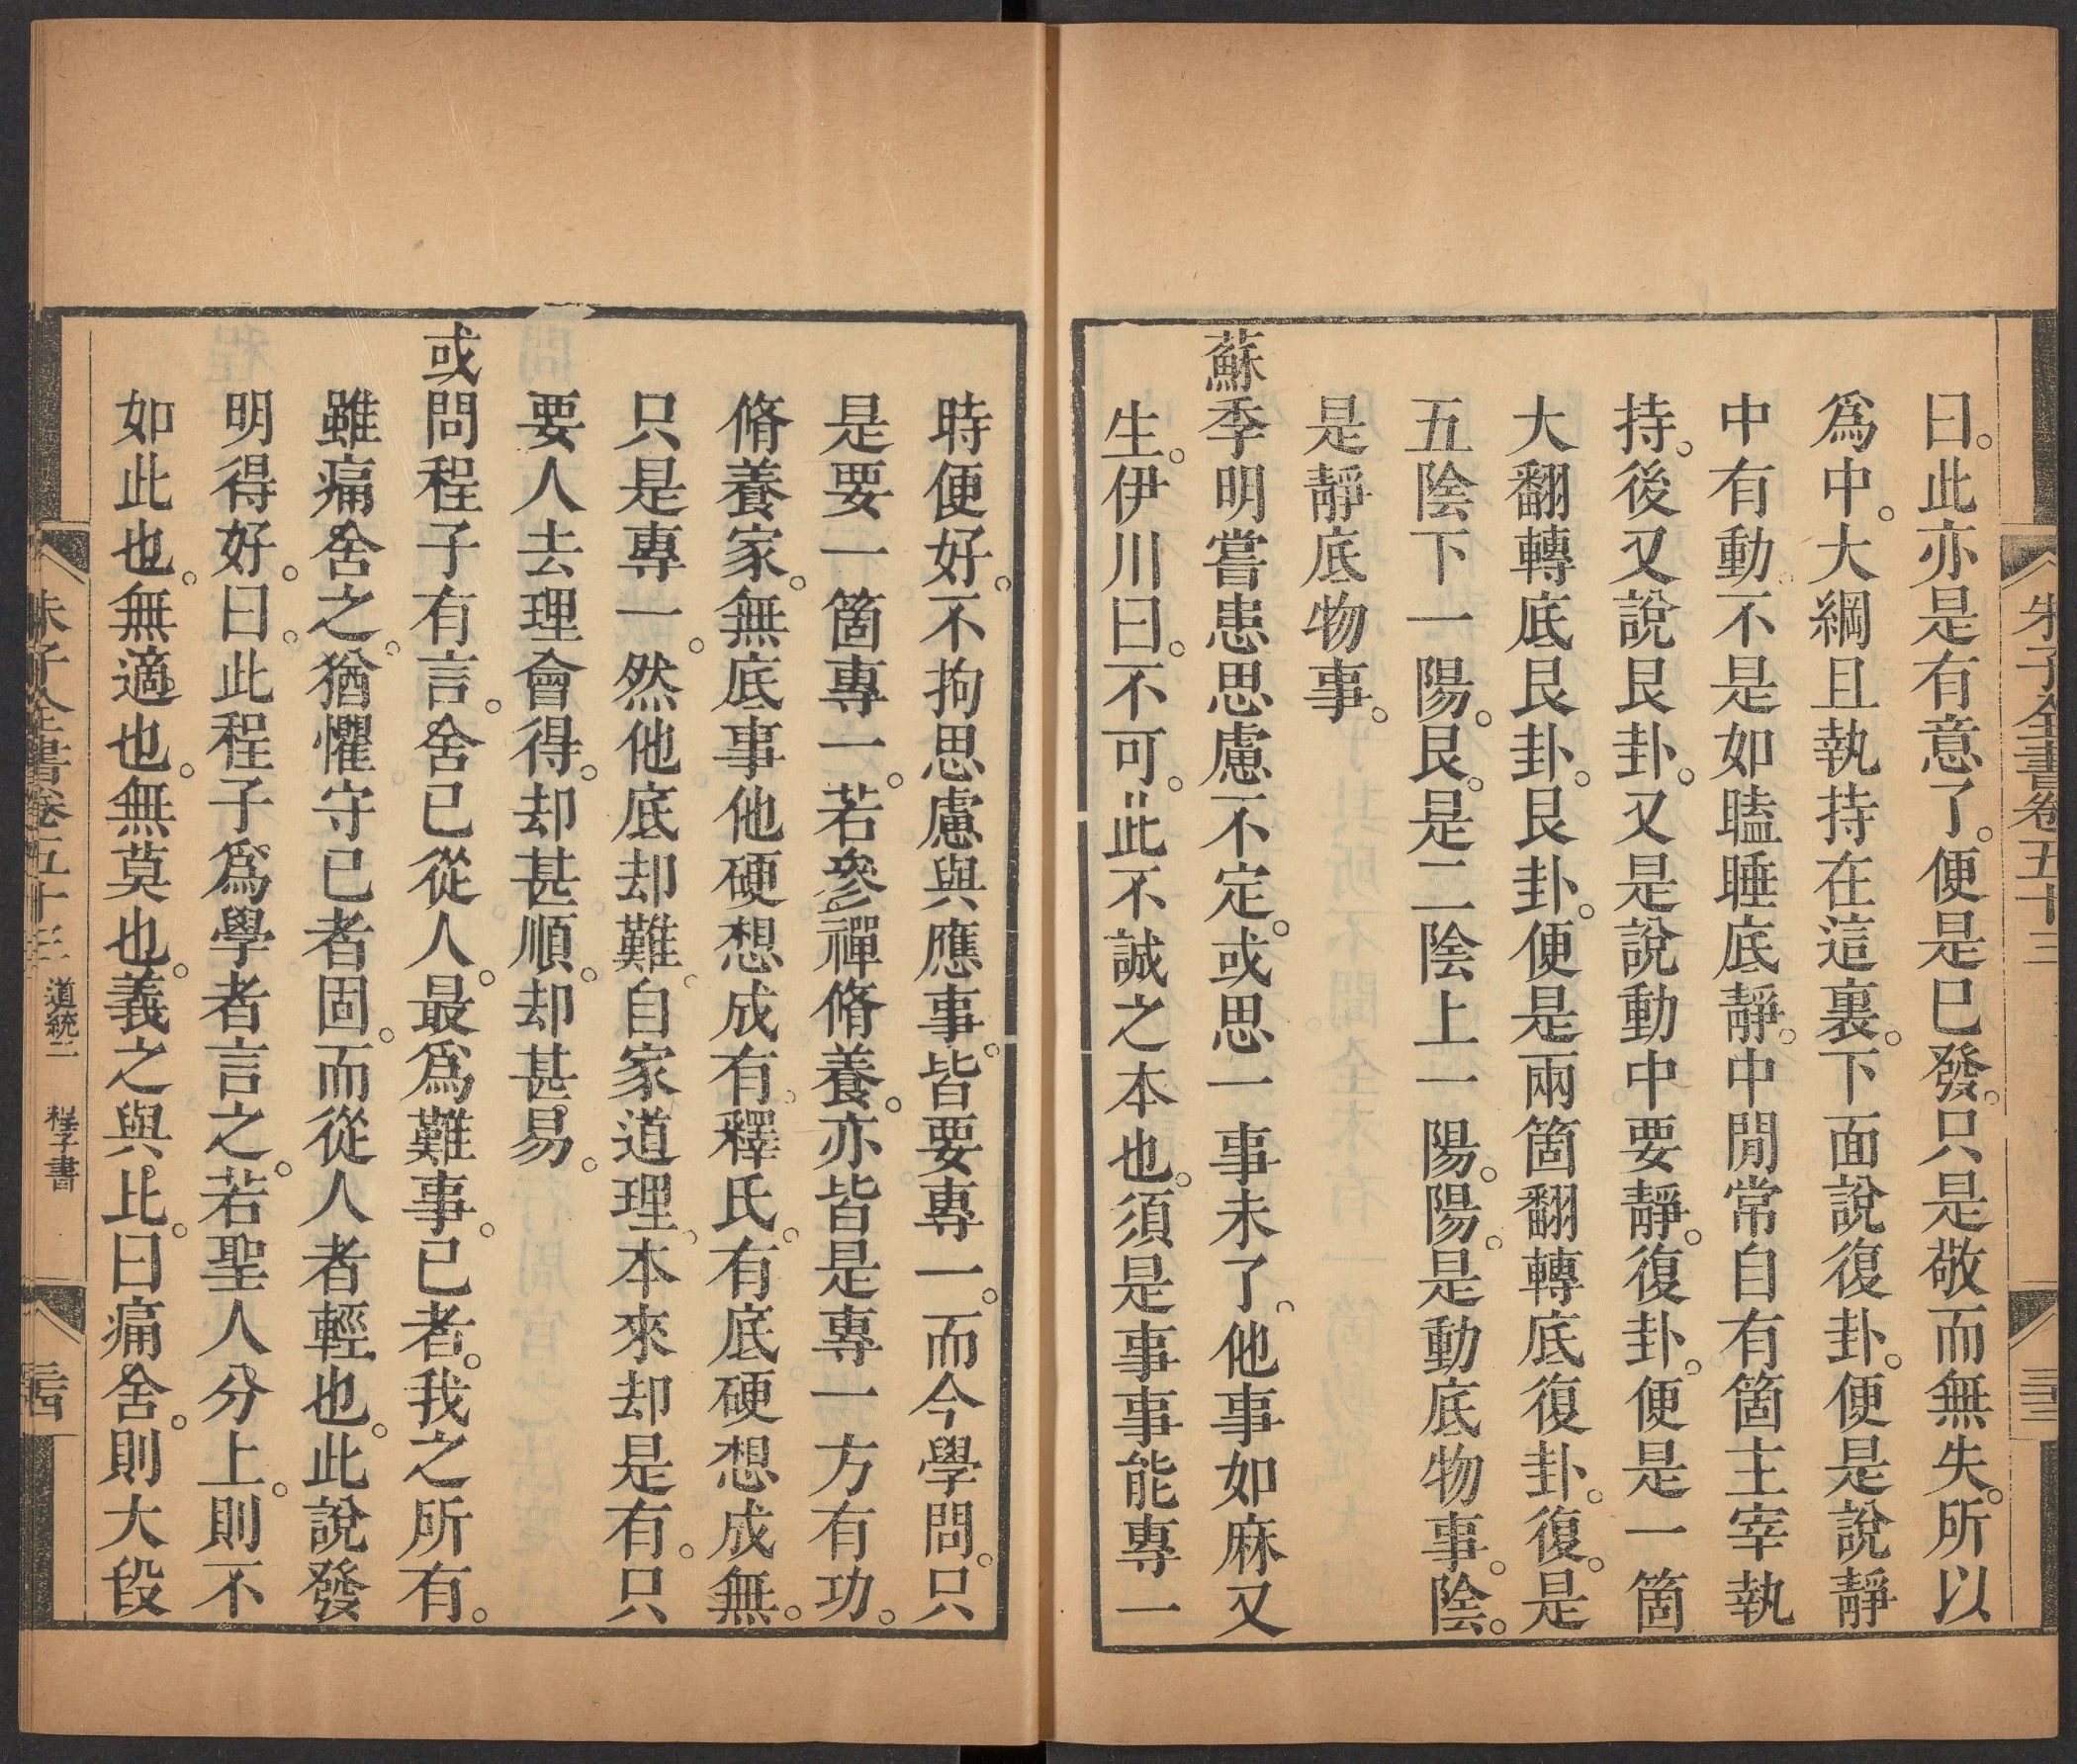 朱子全書卷五十三
曰。此亦是有意了。便是已發。只是敬而無失。所以
爲中。大綱且執持在這裏。下面說復卦。便是說靜
中有動。不是如瞌睡底靜。中閒常自有箇主宰執
持。後又說艮卦。又是說動中要靜。復卦。便是一箇
大翻轉底艮卦。艮卦。便是兩箇翻轉底復卦。復。是
五陰下一陽。艮。是二陰上一陽。陽。是動底物事。陰。
是靜底物事。
蘇季明嘗患思慮不定。或思一事未了。他事如麻又
生。伊川曰。不可。此不誠之本也。須是事事能專一
時便好。不拘思慮與應事。皆要專一。而今學問。只
是要一箇專一。若參禪脩養。亦皆是專一方有功。
脩養家。無底事他硬想成有。釋氏。有底硬想成無。
只是專一。然他底却難。自家道理。本來却是有。只
要人去理會得。却甚順。却甚易。
或問程子有言。舍己從人。最爲難事。己者。我之所有。
雖痛舍之。猶懼守己者固。而從人者輕也。此說發
明得好。曰。此程子爲學者言之。若聖人分上。則不
如此也。無適也。無莫也。義之與比。曰痛舍。則大段
朱子全書卷五十三 道統二 程子書